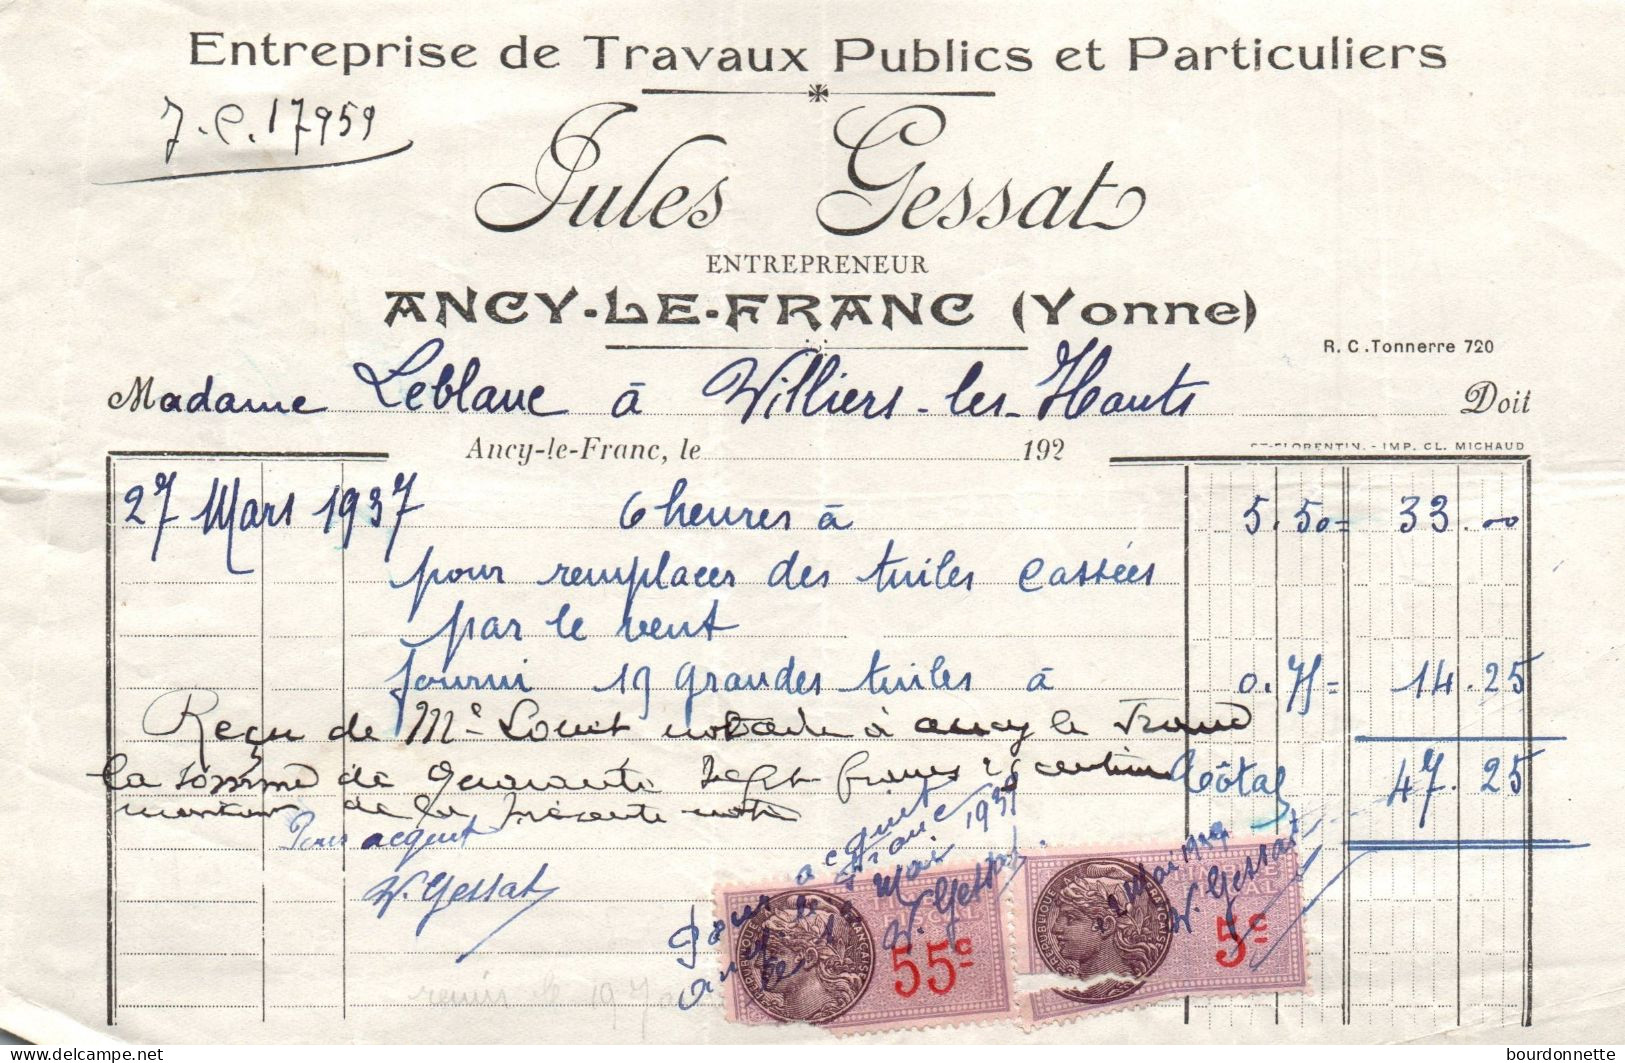 Entreprise de Travaux Publics et Particuliers
J.C. 17959
Jules Gessat
ENTREPRENEUR
ANCY-LE-FRANC (Yonne)
R. C. Tonnerre 720
Madame Leblanc à Villiers-les-Hauts Doit
Ancy-le-Franc, le 192
ST-FLORENTIN. - IMP. CL. MICHAUD
27 Mars 1937 6 heures à 5.50 = 33.00
pour remplacer des tuiles cassées
par le vent
fourni 19 grandes tuiles à 0.75 = 14.25
Reçu de Me Louet notaire à ancy le Franc
la somme de quarante sept francs 25 centimes Tôtal 47.25
montant de la présente note
Pour acquit
V. Gessat
Pour acquit
Franc
Mai 1937
V. Gessat
2 Mai 1937
V. Gessat
REPUBLIQUE FRANÇAISE
FISCAL
55c
REPUBLIQUE FRANÇAISE
5c
delcampe.net
bourdonnette